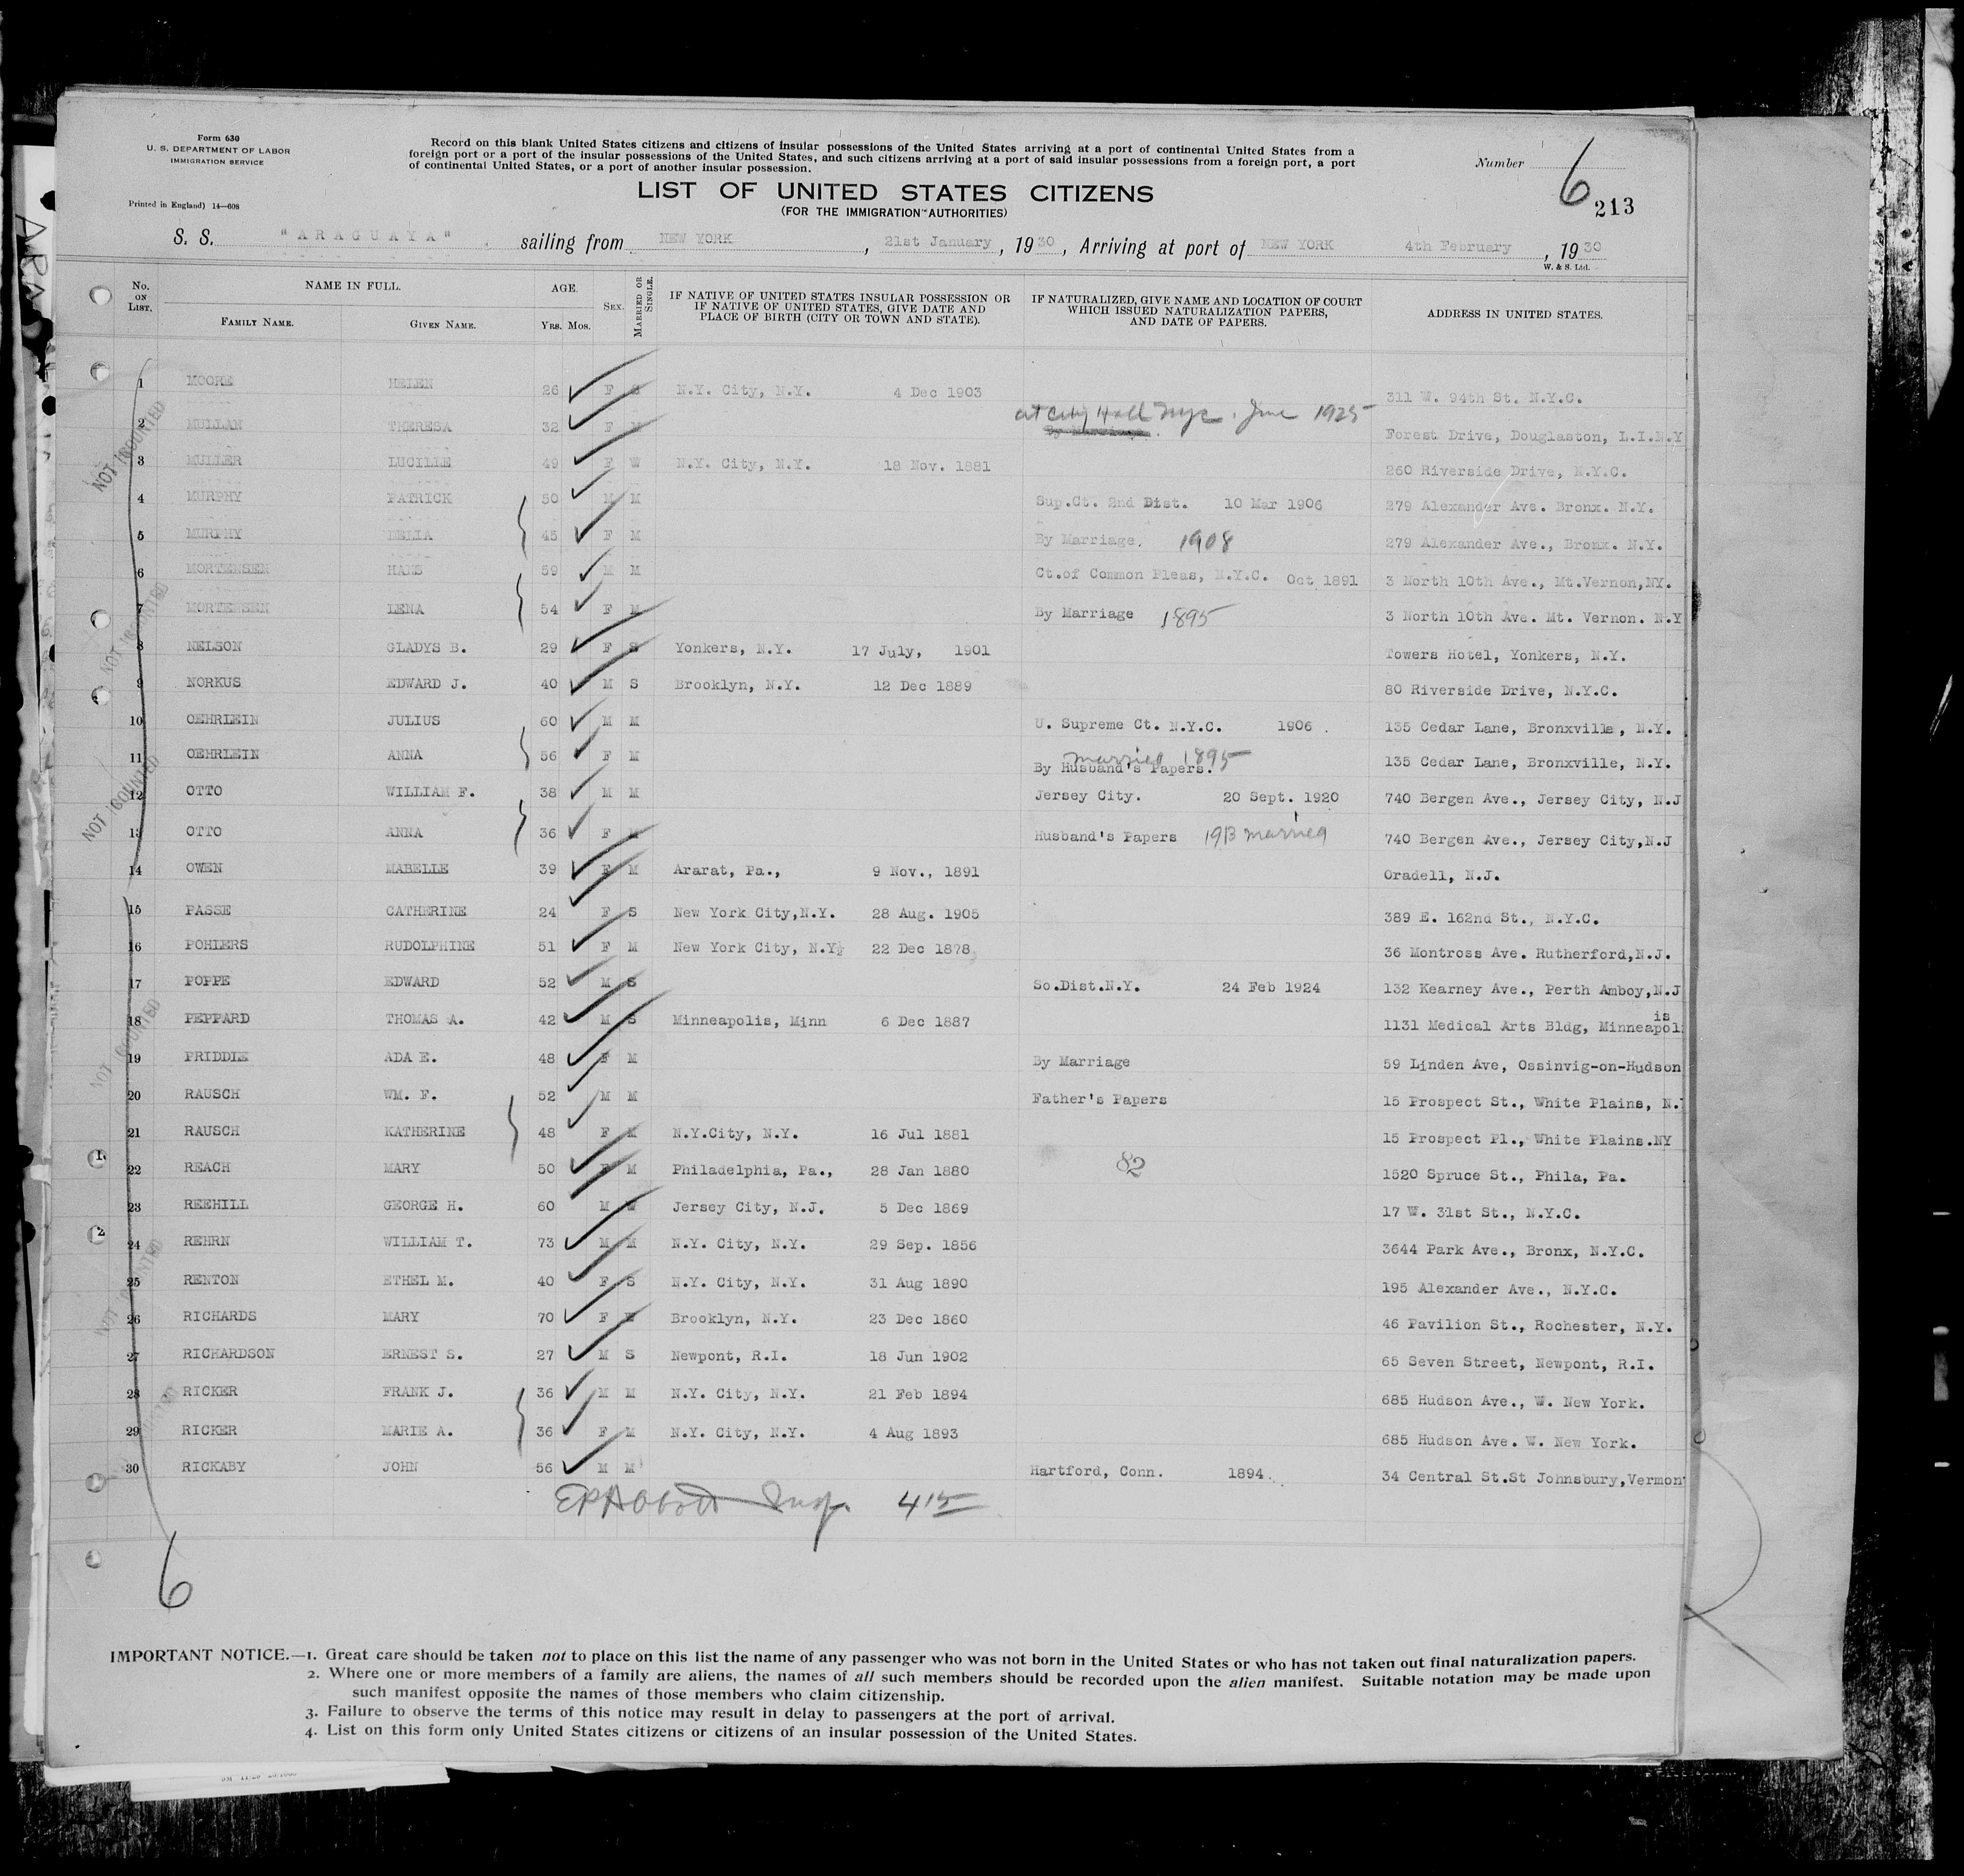 Form 630
U. S. DEPARTMENT OF LABOR
IMMIGRATION SERVICE
Printed in England) 14—608
Record on this blank United States citizens and citizens of insular possessions of the United States arriving at a port of continental United States from a
foreign port or a port of the insular possessions of the United States, and such citizens arriving at a port of said insular possessions from a foreign port, a port
of continental United States, or a port of another insular possession.
Number 6
213
LIST OF UNITED STATES CITIZENS
(FOR THE IMMIGRATION AUTHORITIES)
S. S. "ARAGUAYA" sailing from NEW YORK, 21st January, 1930, Arriving at port of NEW YORK 4th February, 1930
W. & S. Ltd.
No. ON LIST. NAME IN FULL. FAMILY NAME. GIVEN NAME. AGE. Yrs. Mos. SEX. MARRIED OR SINGLE. IF NATIVE OF UNITED STATES INSULAR POSSESSION OR IF NATIVE OF UNITED STATES, GIVE DATE AND PLACE OF BIRTH (CITY OR TOWN AND STATE). IF NATURALIZED, GIVE NAME AND LOCATION OF COURT WHICH ISSUED NATURALIZATION PAPERS, AND DATE OF PAPERS. ADDRESS IN UNITED STATES.
1 MOORE HELEN 26 F S N.Y. City, N.Y. 4 Dec 1903 311 W. 94th St. N.Y.C.
at City Hall NYC. June 1925
2 MULLAN THERESA 32 F M By Marriage. Forest Drive, Douglaston, L.I.N.Y
3 MULLER LUCILLE 49 F W N.Y. City, N.Y. 18 Nov. 1881 260 Riverside Drive, N.Y.C.
4 MURPHY PATRICK 50 M M Sup.Ct. 2nd Dist. 10 Mar 1906 279 Alexander Ave. Bronx. N.Y.
5 MURPHY DELIA 45 F M By Marriage. 1908 279 Alexander Ave., Bronx. N.Y.
6 MORTENSEN HANS 59 M M Ct.of Common Pleas, N.Y.C. Oct 1891 3 North 10th Ave., Mt.Vernon,NY.
7 MORTENSEN LENA 54 F M By Marriage 1895 3 North 10th Ave. Mt. Vernon. N.Y
8 NELSON GLADYS B. 29 F S Yonkers, N.Y. 17 July, 1901 Towers Hotel, Yonkers, N.Y.
9 NORKUS EDWARD J. 40 M S Brooklyn, N.Y. 12 Dec 1889 80 Riverside Drive, N.Y.C.
10 OEHRLEIN JULIUS 60 M M U. Supreme Ct. N.Y.C. 1906. 135 Cedar Lane, Bronxville, N.Y.
married 1895
11 OEHRLEIN ANNA 56 F M By Husband's Papers. 135 Cedar Lane, Bronxville, N.Y.
12 OTTO WILLIAM F. 38 M M Jersey City. 20 Sept. 1920 740 Bergen Ave., Jersey City, N.J
13 OTTO ANNA 36 F M Husband's Papers 1913 married 740 Bergen Ave., Jersey City,N.J
14 OWEN MABELLE 39 F M Ararat, Pa., 9 Nov., 1891 Oradell, N.J.
15 PASSE CATHERINE 24 F S New York City,N.Y. 28 Aug. 1905 389 E. 162nd St., N.Y.C.
16 POHLERS RUDOLPHINE 51 F M New York City, N.Y. 22 Dec 1878 36 Montross Ave. Rutherford,N.J.
17 POPPE EDWARD 52 M S So.Dist.N.Y. 24 Feb 1924 132 Kearney Ave., Perth Amboy,N.J
18 PEPPARD THOMAS A. 42 M S Minneapolis, Minn 6 Dec 1887 1131 Medical Arts Bldg, Minneapolis
19 PRIDDIE ADA E. 48 F M By Marriage 59 Linden Ave, Ossinvig-on-Hudson
20 RAUSCH WM. F. 52 M M Father's Papers 15 Prospect St., White Plains, N.Y
21 RAUSCH KATHERINE 48 F M N.Y.City, N.Y. 16 Jul 1881 15 Prospect Pl., White Plains.NY
22 REACH MARY 50 F M Philadelphia, Pa., 28 Jan 1880 82 1520 Spruce St., Phila, Pa.
23 REEHILL GEORGE H. 60 M W Jersey City, N.J. 5 Dec 1869 17 W. 31st St., N.Y.C.
24 REHRN WILLIAM T. 73 M M N.Y. City, N.Y. 29 Sep. 1856 3644 Park Ave., Bronx, N.Y.C.
25 RENTON ETHEL M. 40 F S N.Y. City, N.Y. 31 Aug 1890 195 Alexander Ave., N.Y.C.
26 RICHARDS MARY 70 F W Brooklyn, N.Y. 23 Dec 1860 46 Pavilion St., Rochester, N.Y.
27 RICHARDSON ERNEST S. 27 M S Newpont, R.I. 18 Jun 1902 65 Seven Street, Newpont, R.I.
28 RICKER FRANK J. 36 M M N.Y. City, N.Y. 21 Feb 1894 685 Hudson Ave., W. New York.
29 RICKER MARIE A. 36 F M N.Y. City, N.Y. 4 Aug 1893 685 Hudson Ave. W. New York.
30 RICKABY JOHN 56 M M Hartford, Conn. 1894. 34 Central St.St Johnsbury,Vermont
EPAbbott Insp. 415
6
NOT COUNTED
NOT COUNTED
NOT COUNTED
NOT COUNTED
NOT COUNTED
IMPORTANT NOTICE.—1. Great care should be taken not to place on this list the name of any passenger who was not born in the United States or who has not taken out final naturalization papers.
2. Where one or more members of a family are aliens, the names of all such members should be recorded upon the alien manifest. Suitable notation may be made upon
such manifest opposite the names of those members who claim citizenship.
3. Failure to observe the terms of this notice may result in delay to passengers at the port of arrival.
4. List on this form only United States citizens or citizens of an insular possession of the United States.